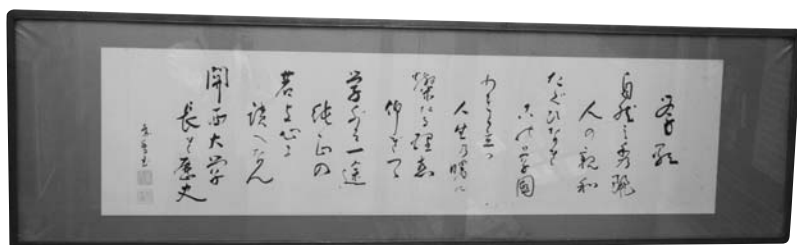 学歌
自然之秀麗
人の親和
たぐひなき
この学園
人生の曙に
燦たる理想
仰ぎて
学ぶや一途
純正の
若き心に
讃へなん
関西大学
長き歴史